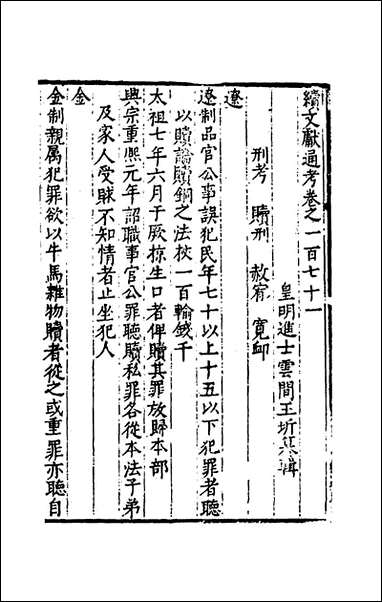 續文獻通考卷之一百七十一
皇明進士雲間王圻纂輯
刑考 贖刑 赦宥 寬卹
遼
遼制品官公事誤犯民年七十以上十五以下犯罪者聽
以贖論贖銅之法杖一百輸錢千
太祖七年六月于厥掠生口者俾贖其罪放歸本部
興宗重熙元年詔職事官公罪聽贖私罪各從本法子弟
及家人受賕不知情者止坐犯人
金
金制親屬犯罪欲以牛馬雜物贖者從之或重罪亦聽自